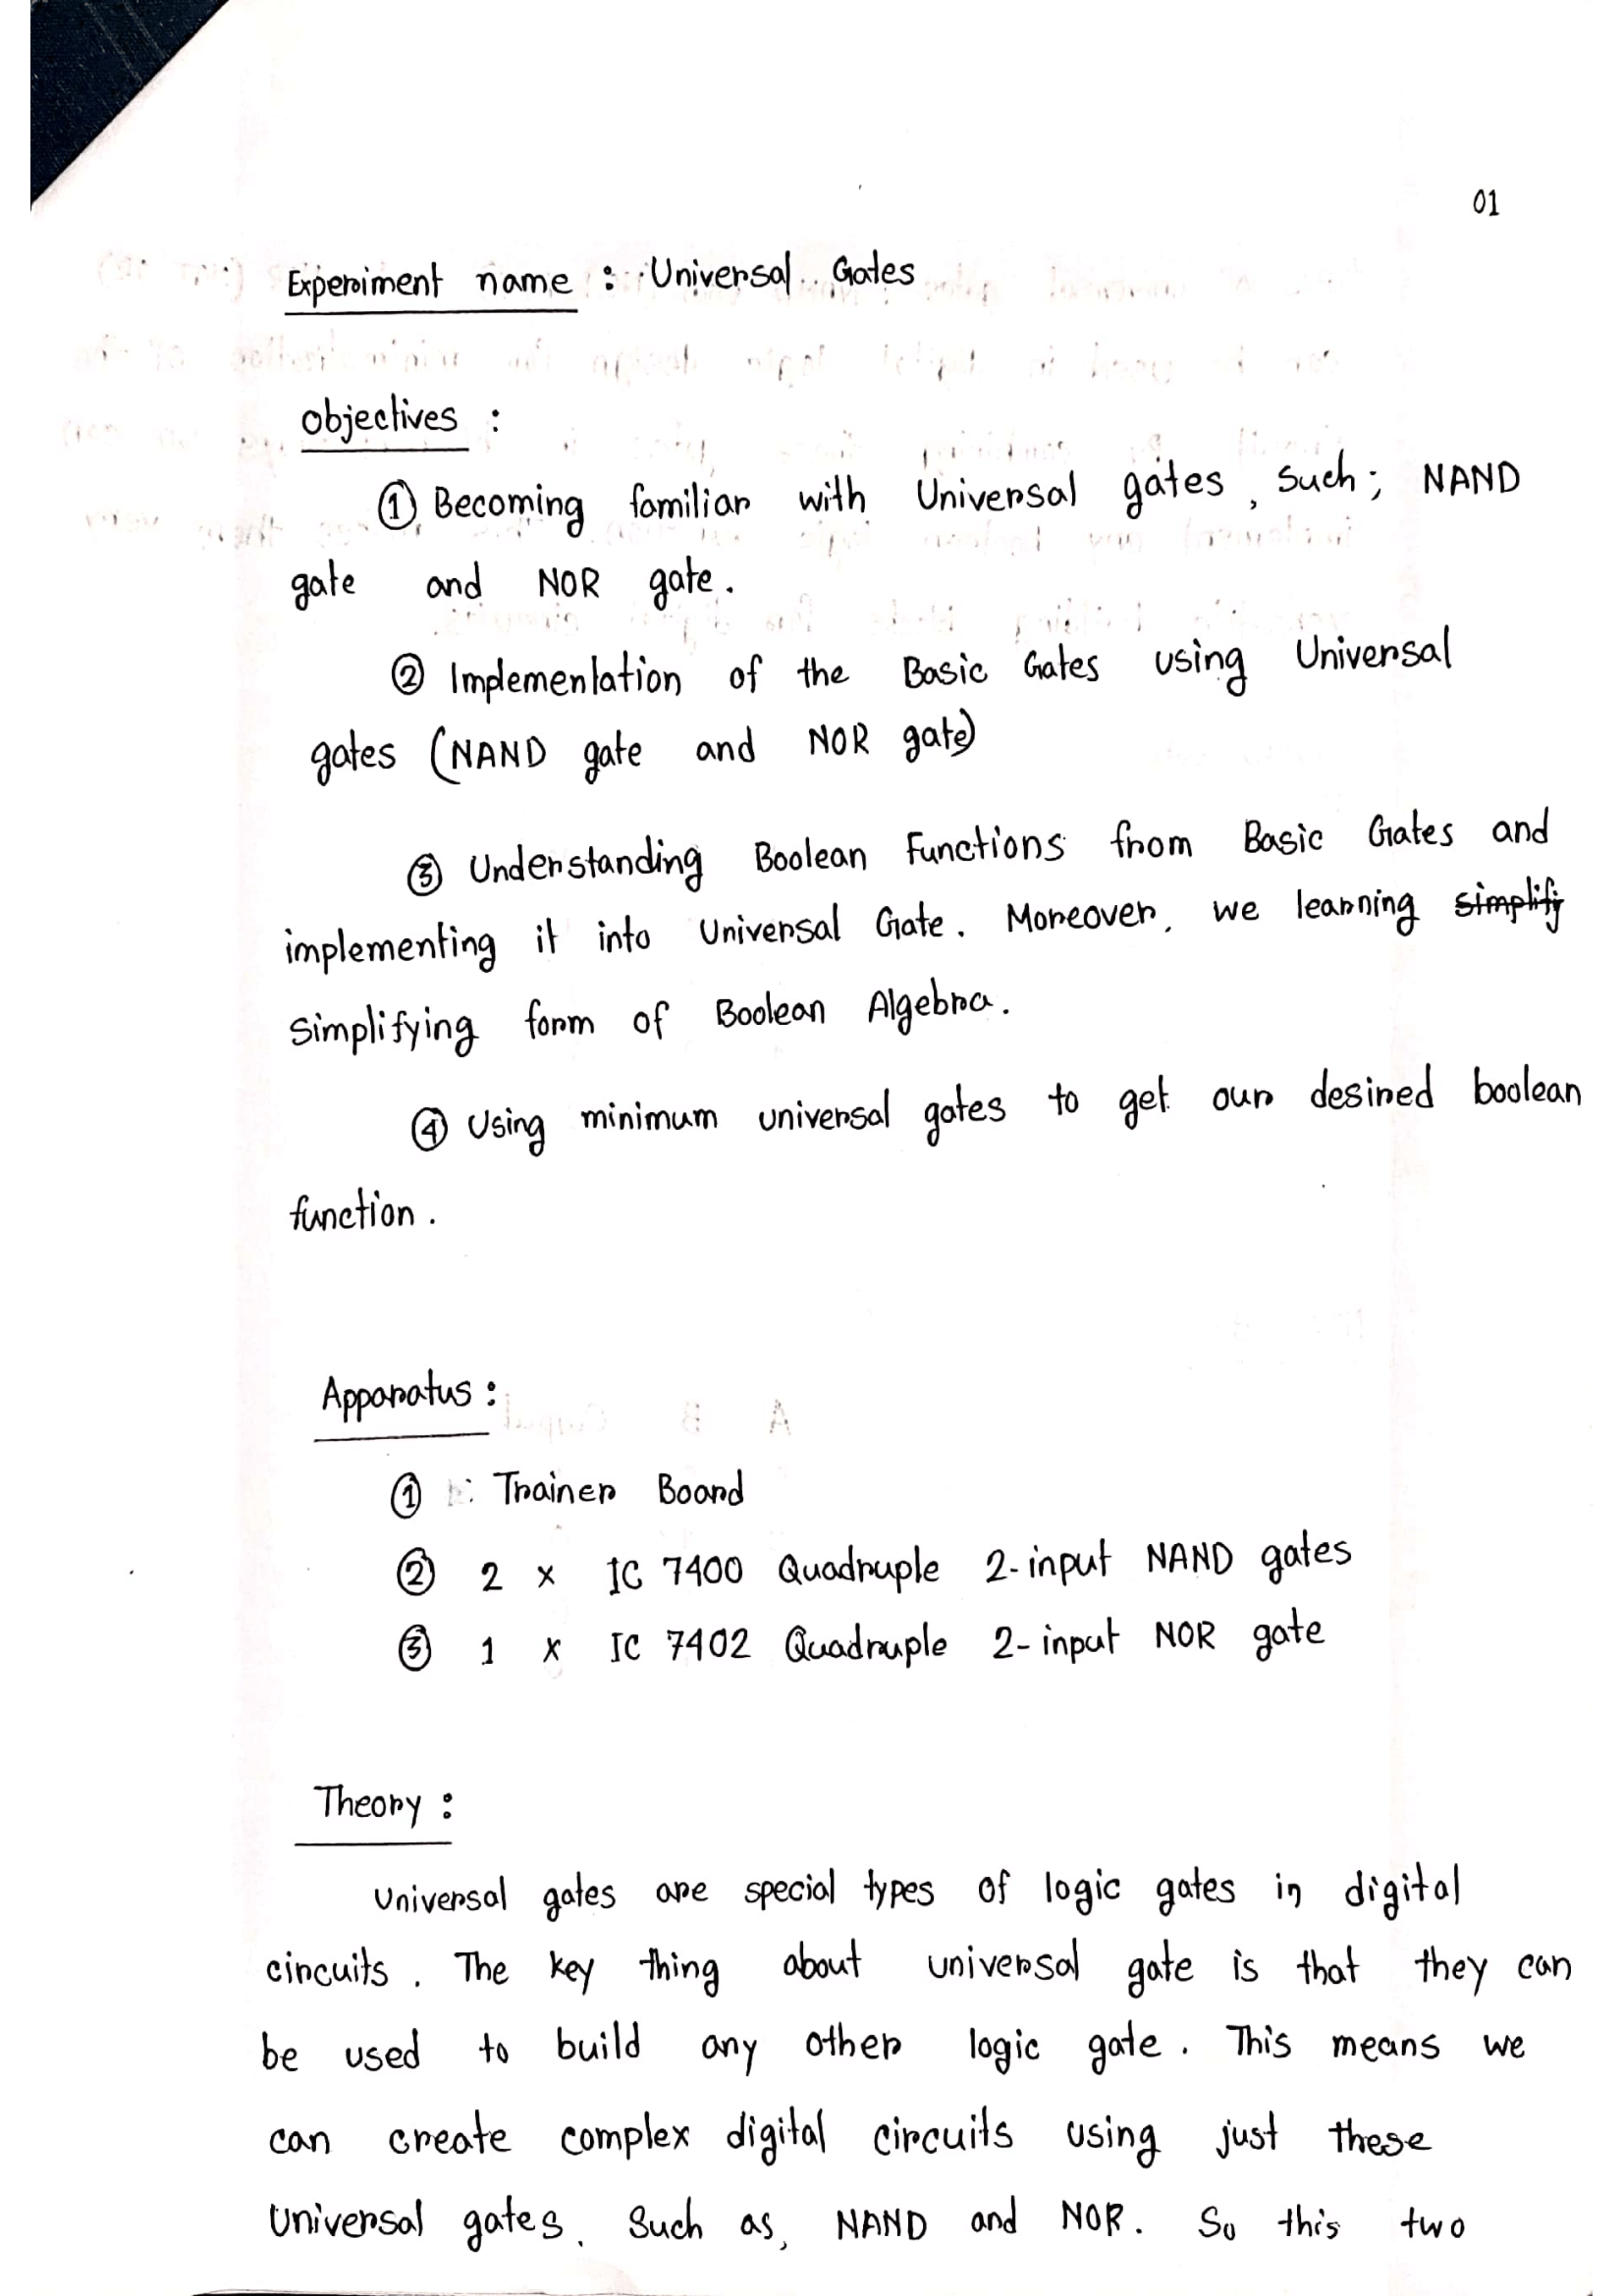 01
Experiment name : Universal Gates
objectives :
① Becoming familiar with Universal gates, Such; NAND
gate and NOR gate.
② Implementation of the Basic Gates using Universal
gates (NAND gate and NOR gate)
③ Understanding Boolean Functions from Basic Gates and
implementing it into Universal Gate. Moreover, we learning simplify
Simplifying form of Boolean Algebra.
④ Using minimum universal gates to get our desired boolean
function.
Apparatus :
① Trainer Board
② 2 x IC 7400 Quadruple 2-input NAND gates
③ 1 x IC 7402 Quadruple 2-input NOR gate
Theory :
Universal gates are special types of logic gates in digital
circuits. The key thing about universal gate is that they can
be used to build any other logic gate. This means we
can create complex digital circuits using just these
Universal gates. Such as, NAND and NOR. So this two